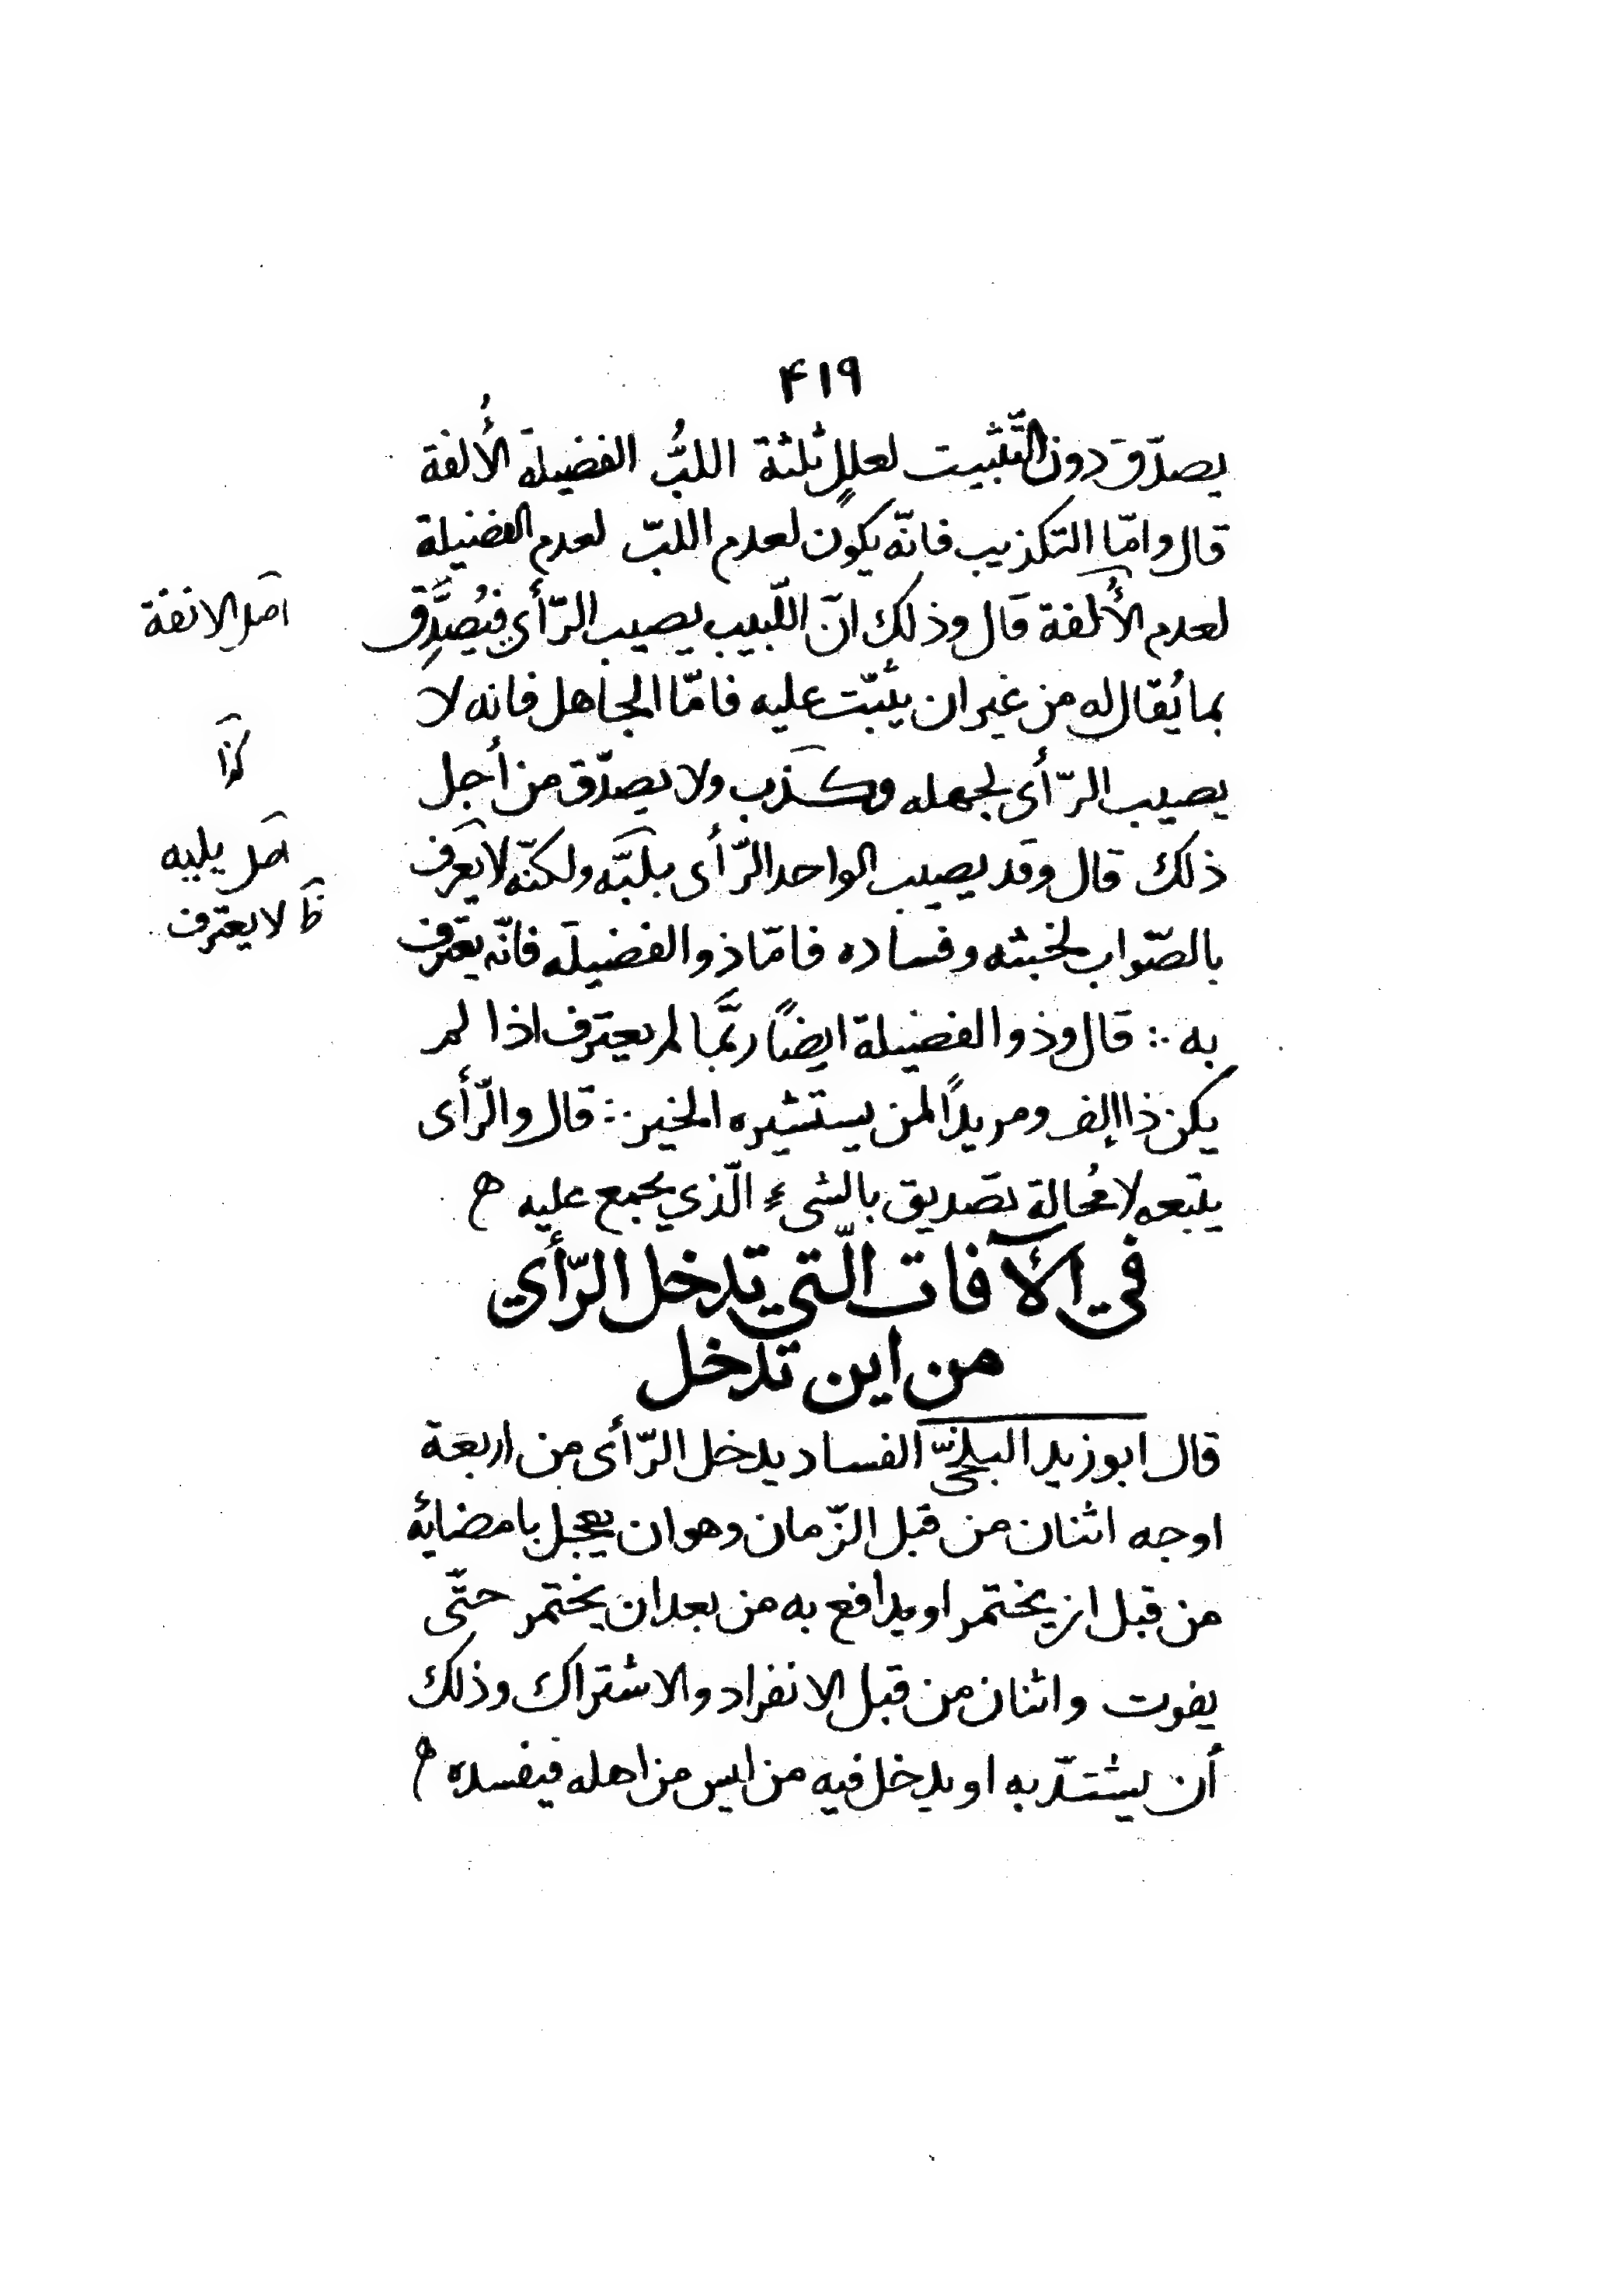 ۴۱۹
يصدّق دون التّثبيت لعللٍ ثلثة اللبُّ الفضيلة الأُلفة
قال وامّا التكذيب فانّه يكون لعدم اللبّ لعدم الفضيلة
لعدم الأُلفة قال وذلك انّ اللّبيب يصيب الرّأي فيُصَدِّق
بما يُقال له من غير ان يثبّت عليه فامّا الجاهل فانه لا
يصيب الرّأى لجهله وكذب ولا يصدّق من أجل
ذلك قال وقد يصيب الواحد الرّأى بلبّه ولكنّه لا يعرف
بالصّواب لخبثه وفساده فامّا ذو الفضيله فانّه يعترف
به ∴ قال وذو الفضيلة ايضًا ربَّما لم يعترف اذا لم
يكن ذا إلف ومريدًا لمن يستشيره الخير ∴ قال والرّأى
يتبعه لا مُحالة تصديق بالشىء الّذي يجمع عليه ه
في الآفات الّتي تدخل الرّأي
من اين تدخل
قال ابو زيد البلخيّ الفساد يدخل الرّأى من اربعة
اوجه اثنان من قبل الزّمان وهو ان يعجل بامضائه
من قبل ان يختمر او يدافع به من بعد ان يختمر حتّى
يفوت واثنان من قبل الانفراد والاشتراك وذلك
أن يشتدّ به او يدخل فيه من ليس من اهله فيفسده ه
اصل الانفة
كذا
اصل يلبيه
ظ لا يعترف